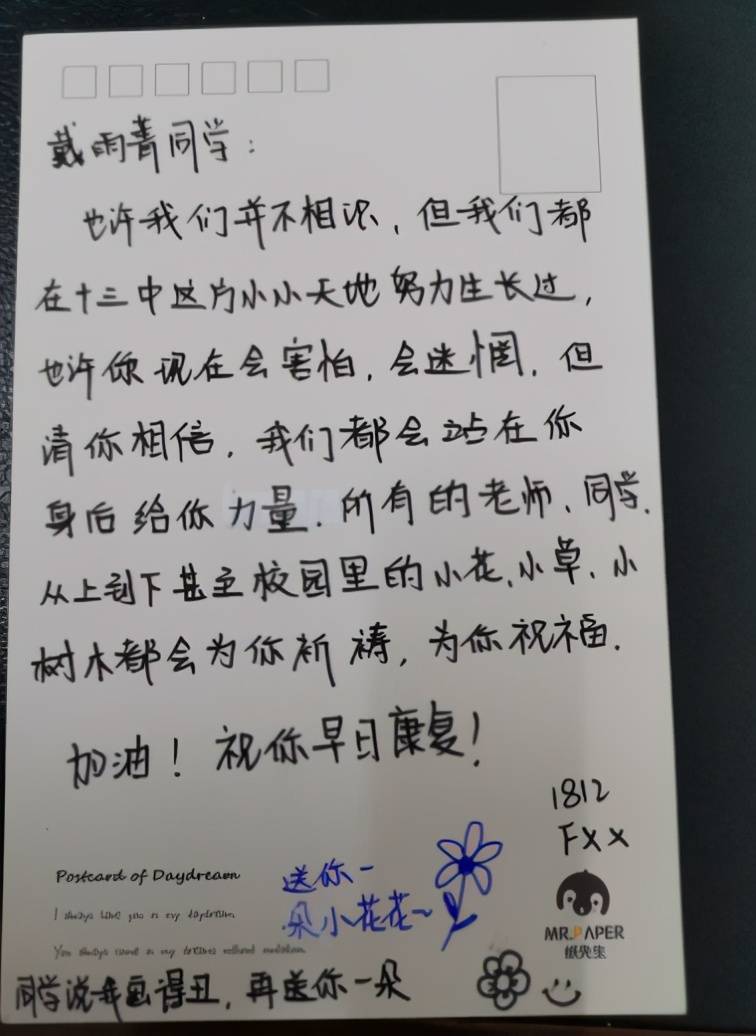 戴雨菁同学：
也许我们并不相识，但我们都
在十三中这片小小天地努力生长过，
也许你现在会害怕，会迷惘，但
请你相信，我们都会站在你
身后给你力量．所有的老师、同学．
从上到下甚至校园里的小花、小草、小
树木都会为你祈祷，为你祝福．
加油！祝你早日康复！
1812
FXX
Postcard of Daydream
送你一
朵小花花~
I always have you in my daydream
MR.PAPER
纸先生
You always in my
同学说我画得丑，再送你一朵